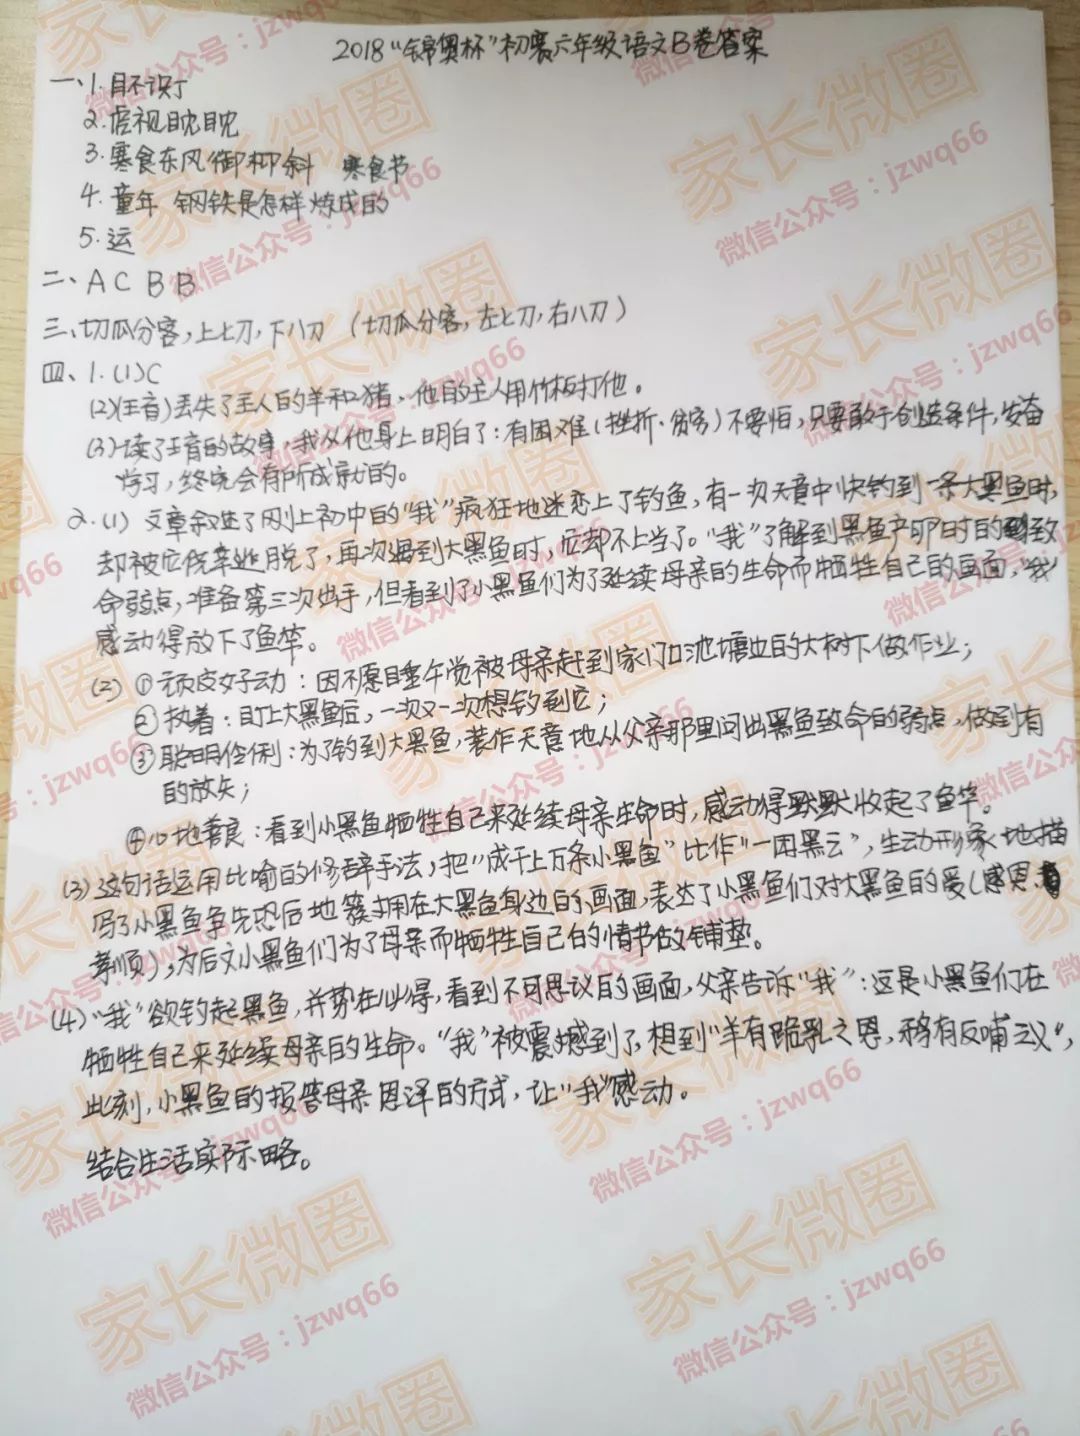 2018“锦奥杯”初赛六年级语文B卷答案
一、1.目不识丁
2.虎视眈眈
3.寒食东风御柳斜 寒食节
4.童年 钢铁是怎样炼成的
5.运
二、A C B B
三、切瓜分客,上七刀,下八刀 (切瓜分客,左七刀,右八刀)
四、1.(1)C
(2)(王育)丢失了主人的羊和猪,他的主人用竹板打他。
(3)读了王育的故事,我从他身上明白了:有困难(挫折·贫穷)不要怕,只要敢于创造条件,发奋
学习,终究会有所成就的。
2.(1) 文章叙述了刚上初中的“我”疯狂地迷恋上了钓鱼,有一次无意中快钓到一条大黑鱼时,
却被它侥幸逃脱了,再次遇到大黑鱼时,它却不上当了。“我”了解到黑鱼产卵时的致
命弱点,准备第三次出手,但看到了小黑鱼们为了延续母亲的生命而牺牲自己的画面,“我”
感动得放下了鱼竿。
(2) ①顽皮好动:因不愿睡午觉被母亲赶到家门口池塘边的大树下做作业;
②执着:盯上大黑鱼后,一次又一次想钓到它;
③聪明伶俐:为了钓到大黑鱼,装作无意地从父亲那里问出黑鱼致命的弱点,做到有
的放矢;
④心地善良:看到小黑鱼牺牲自己来延续母亲生命时,感动得默默收起了鱼竿。
(3)这句话运用比喻的修辞手法,把“成千上万条小黑鱼”比作“一团黑云”,生动形象地描
写了小黑鱼争先恐后地簇拥在大黑鱼身边的画面,表达了小黑鱼们对大黑鱼的爱(感恩、
孝顺),为后文小黑鱼们为了母亲而牺牲自己的情节做铺垫。
(4)“我”欲钓起黑鱼,并势在必得,看到不可思议的画面,父亲告诉“我”:这是小黑鱼们在
牺牲自己来延续母亲的生命。“我”被震撼到了,想到“羊有跪乳之恩,鸦有反哺之义”,
此刻,小黑鱼的报答母亲恩泽的方式,让“我”感动。
结合生活实际略。
家长微圈
微信公众号:jzwq66